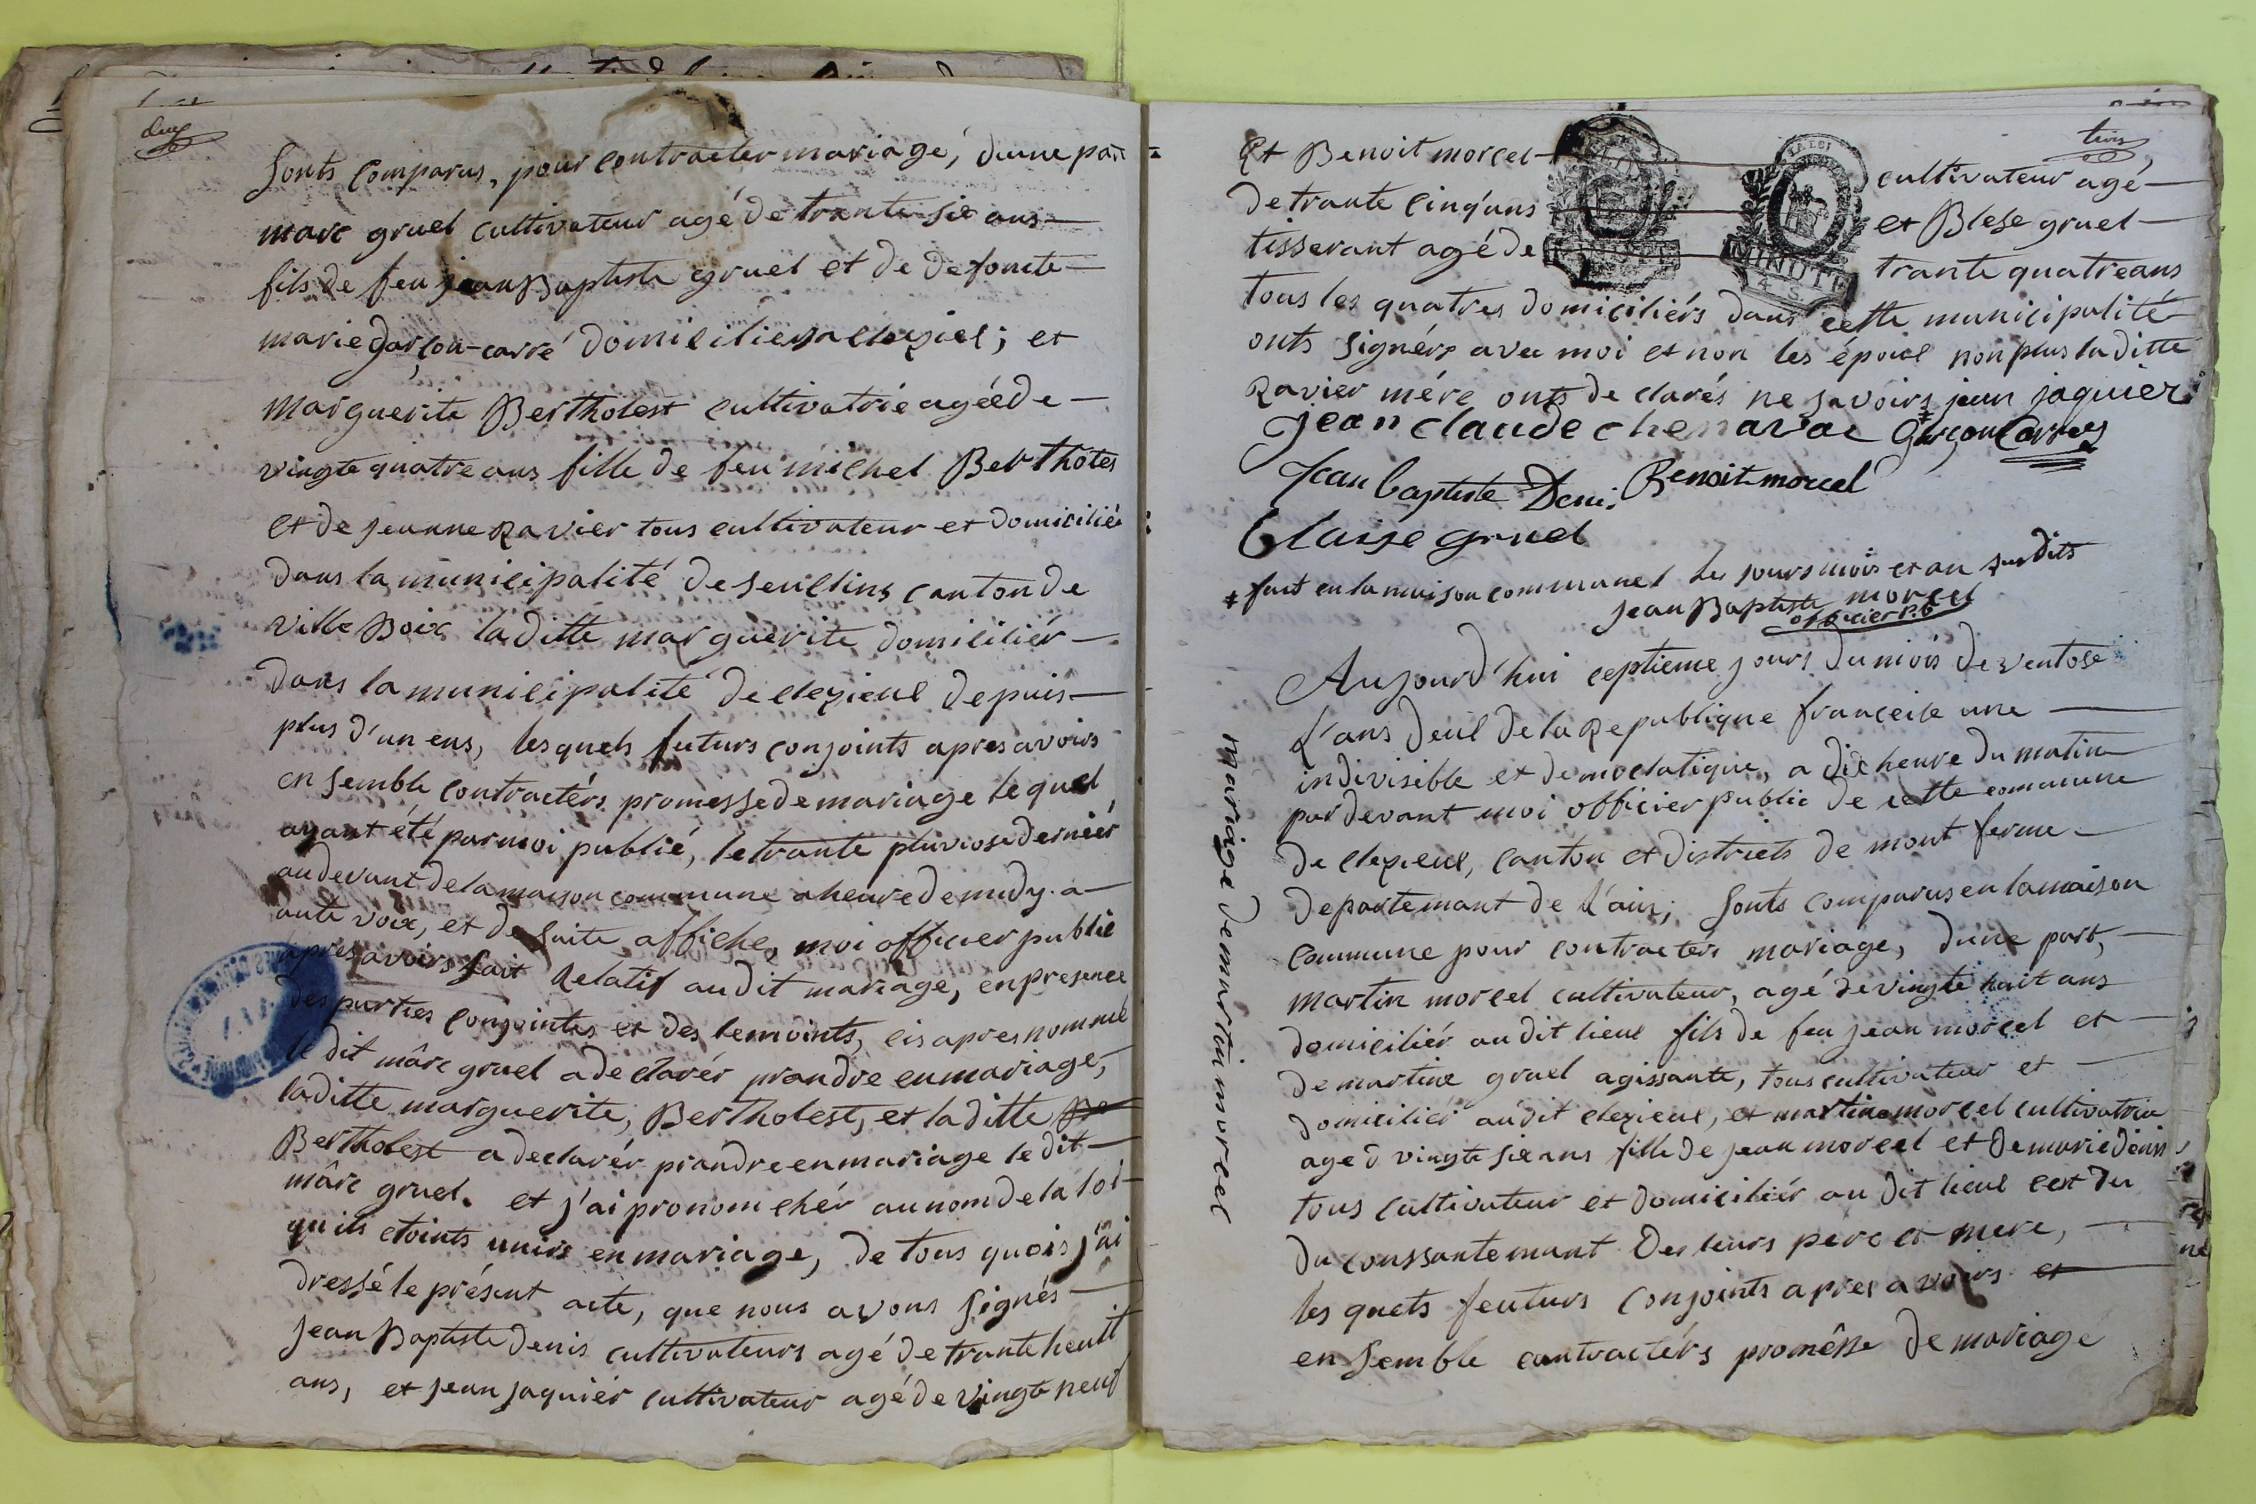 deux
sonts comparus, pour contracter mariage, dune part
marc gruel cultivateur agé de trante six ans
fils de feu jean Baptiste gruel et de defonte
marie garçon-carré domicilier a clezieu; et
marguerite Bertholest cultivatrie agéé de
vingte quatre ans fille de feu michel Bertholes
et de jeanne Ravier tous cultivateur et domiciliés
dans la municipalité de seullins canton de
ville Boix la ditte marguerite domiciliér
dans la municipalité de clezieux depuis
plus d'un ens, les quels futurs conjoints apres avoirs
en semble contractérs promesse de mariage le quel
ayant été par moi publié, le trante pluviose derniér
au devant de la maison commune a heure de midy a
aute voix, et de suite affiche, moi officier public
apres avoirs fait Relatif au dit mariage, en presence
des parties conjointes et des temoints, cis apres nommé
le dit mârc gruel a declarér prandre en mariage,
la ditte marguerite, Bertholest, et la ditte
Bertholest a declarér prandre en mariage le dit
mârc gruel. et j'ai pronom chér au nom de la loi
qu'ils etoints unirs en mariage, de tous quois j'ai
dressé le présent acte, que nous avons signés
jean Baptiste denis cultivateurs agé de trante heuit
ans, et jean jaquiér cultivateur agé de vingte neuf
trois
Et Benoit morcel cultivateur agé
de trante cinq'ans et Blese gruel
tisserant agé de trante quatre ans
MINUTE
4. S.
tous les quatres domiciliérs dans cette municipalité
onts signérs avec moi et non les époux non plus la ditte
Ravier mére onts de clarés ne savoirs ǂ jean jaquier
jean claude chenavac Garçon Carrez
Jean baptiste Deni. Benoit morcel
blaise gruel
ǂ fait en la maison communel les jours mois et an sur dits
jean Baptiste morcel
officier p.b
mariage de martin morcel
Aujourd'hui ceptieme jours du mois de ventose
L'ans deux de la Republique françeise une
indivisible et democlatique, a dix heure du matin
par devant moi officier public de cette commune
de clezieux, canton et districts de mont ferme
departemant de l'ain; sonts comparus en la maison
commune pour contracters mariage, dune part,
martin morcel cultivateur, agé de vingte huit ans
domiciliér au dit lieux fils de feu jean morcel et
de martine gruel agissante, tous cultivateur et
domiciliér au dit clezieux, et martine morcel cultivatrice
age d vingte six ans fille de jean morcel et de marie denis
tous cultivateur et domiciliér au dit lieux cest du
du conssantemant des leurs pere et mere,
les quels feuturs conjoints apres avoirs et
en semble contractérs promêsse de mariage